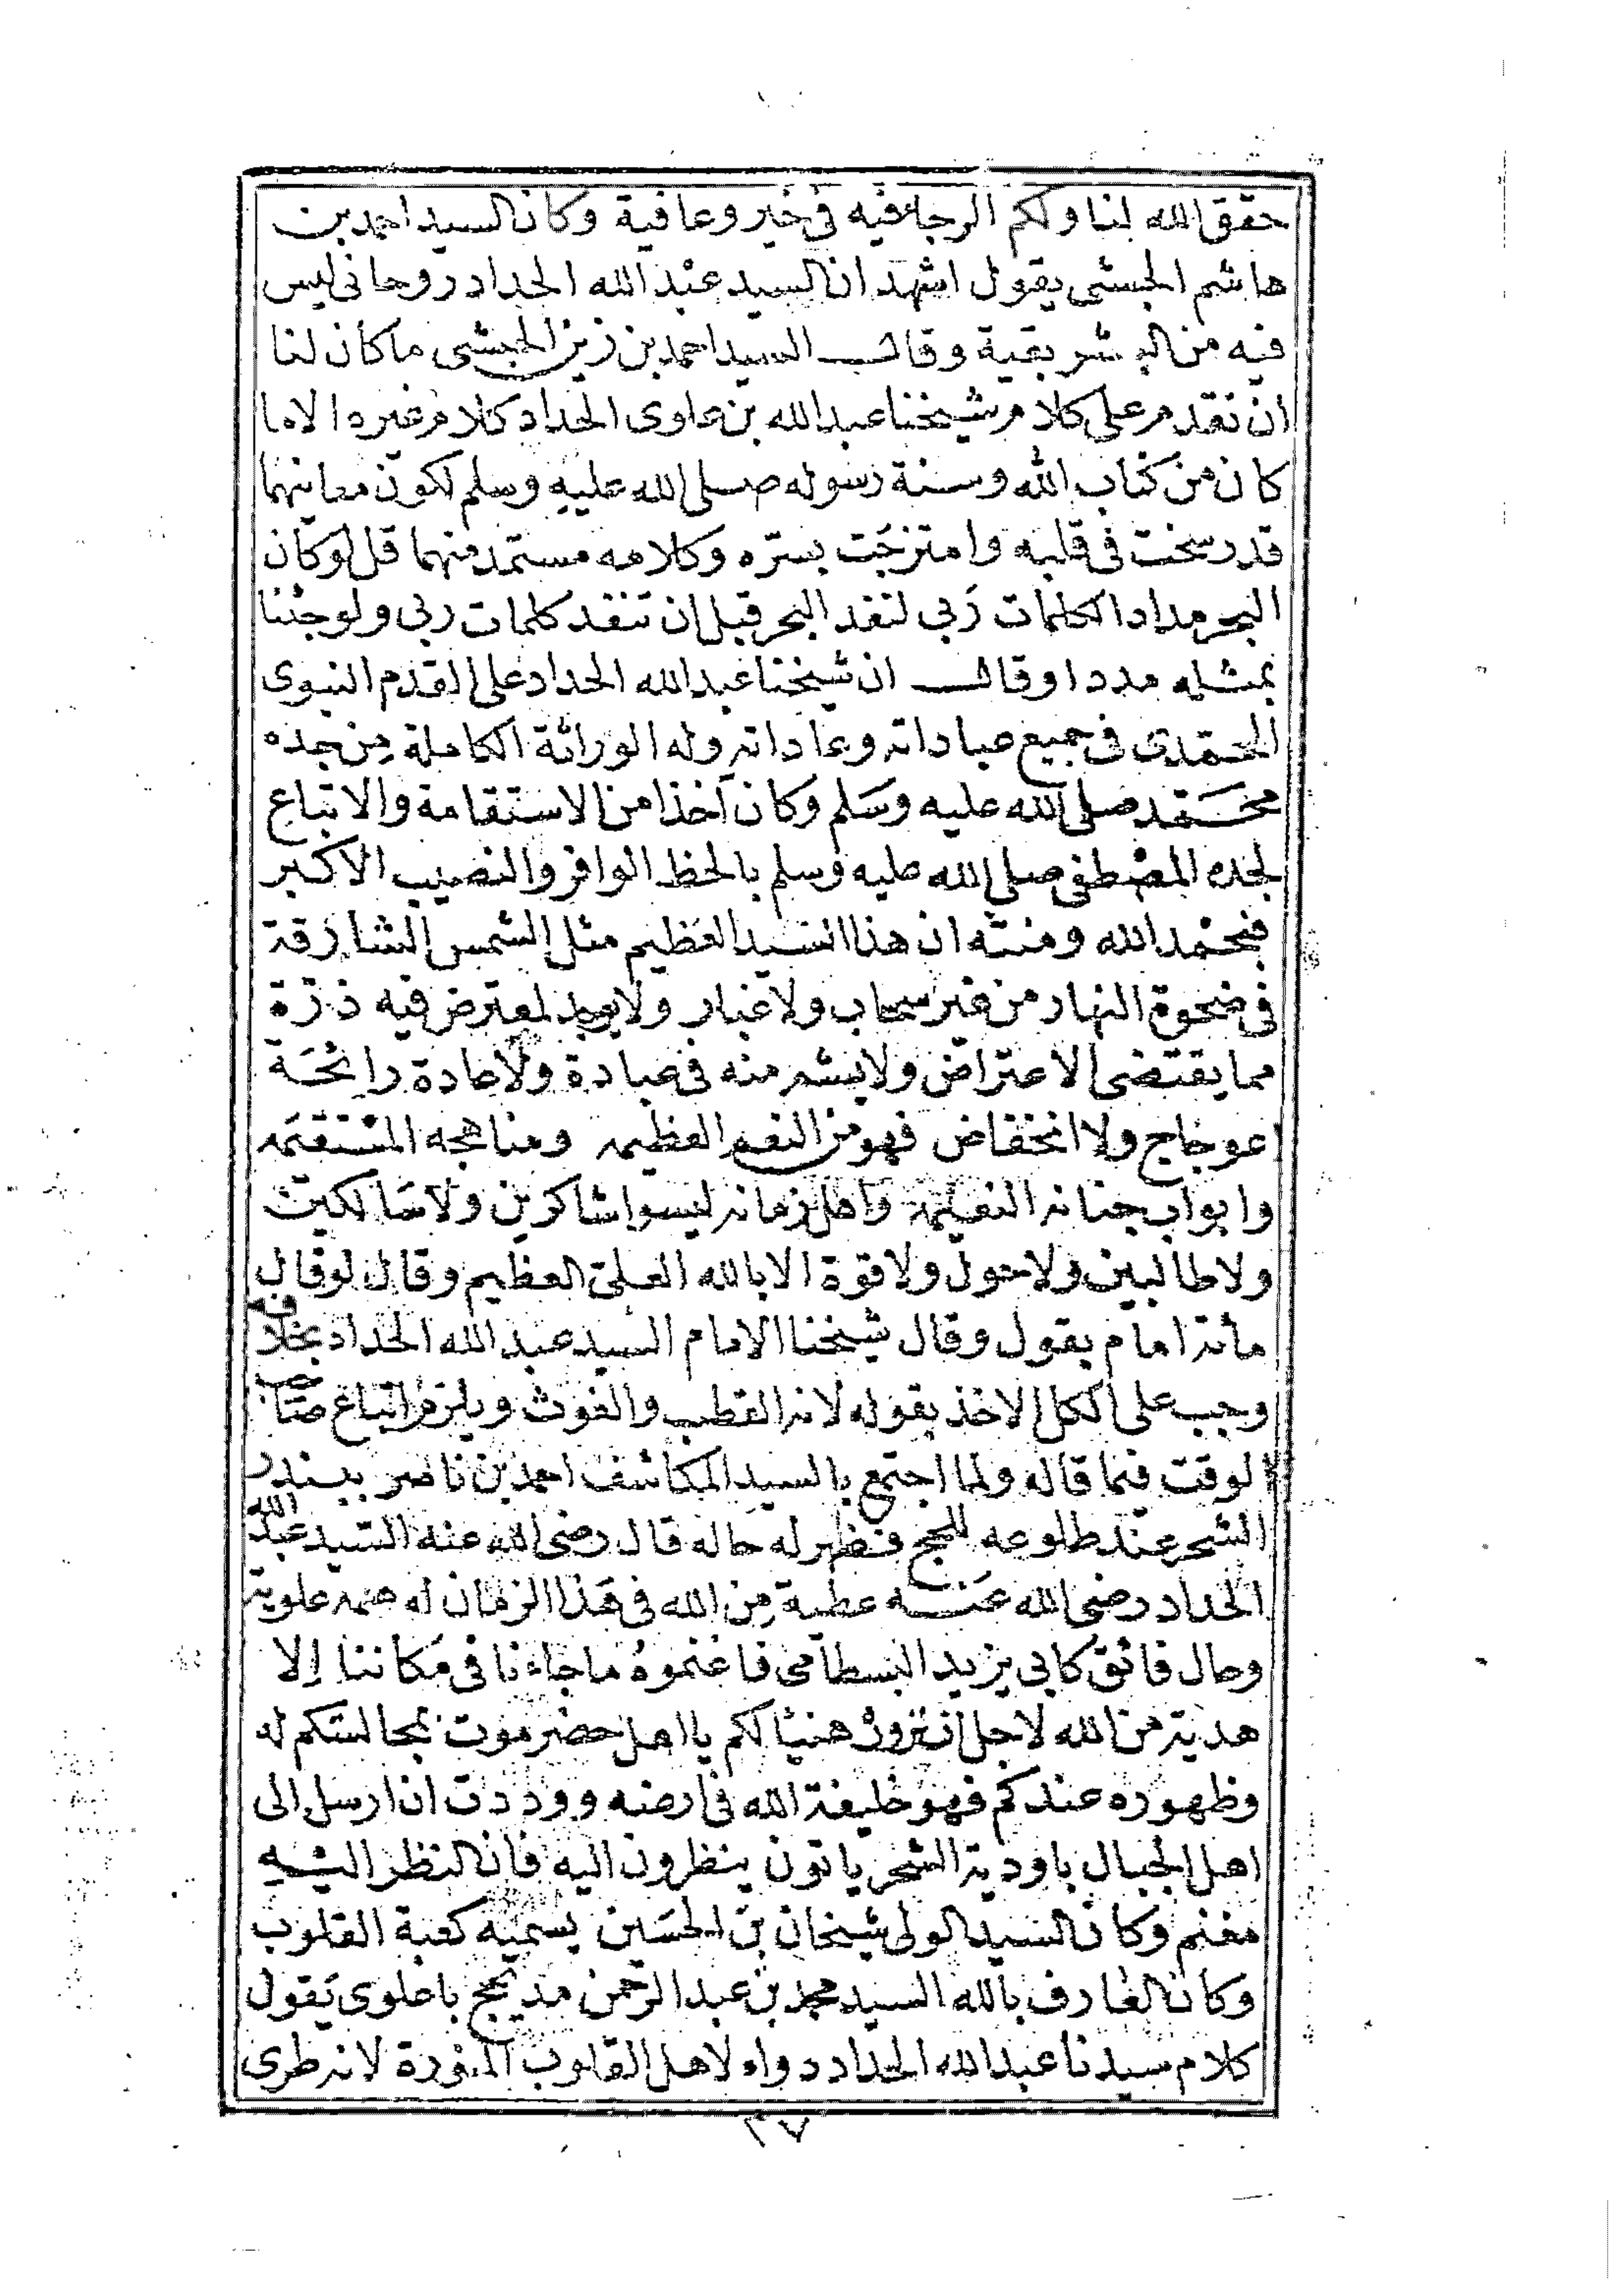 حقق الله لنا ولكم الرجاء فيه في خير وعافية وكان السيد احمد بن
هاشم الحبشي يقول اشهد ان السيد عبد الله الحداد روحاني ليس
فيه من البشر بقية وقال السيد احمد بن زين الحبشي ما كان لنا
ان نقدم على كلام شيخنا عبد الله بن علوى الحداد كلام غيره الا ما
كان من كتاب الله وسنة رسوله صلى الله عليه وسلم لكون معانيهما
قد رسخت في قلبه وامتزجت بسره وكلامه مستمد منهما قل لو كان
البحر مدادا لكلمات ربي لنفد البحر قبل ان تنفد كلمات ربي ولو جئنا
بمثله مددا وقال ان شيخنا عبد الله الحداد على القدم النبوى
المحمدى في جميع عباداته وعاداته وله الوراثة الكاملة من جده
محمد صلى الله عليه وسلم وكان آخذا من الاستقامة والاتباع
لجده المصطفى صلى الله عليه وسلم بالحظ الوافر والنصيب الاكبر
فبحمد الله ومنته ان هذا السيد العظيم مثل الشمس الشارقة
في ضحوة النهار من غير سحاب ولا غبار ولا يوجد لمعترض فيه ذرة
مما يقتضى الاعتراض ولا يشم منه في عبادة ولا عادة رائحة
اعوجاج ولا انخفاض فهو من النعم العظيمه ومناهجه المستقيمه
وابواب جنانه النعيمة واهل زمانه ليسوا شاكرين ولا سالكين
ولا طالبين ولا حول ولا قوة الا بالله العلي العظيم وقال لو قال
مائة امام بقول وقال شيخنا الامام السيد عبد الله الحداد بخلافه
وجب على الكل الاخذ بقوله لانه القطب والغوث ويلزم اتباع صاحب
الوقت فيما قاله ولما اجتمع بالسيد المكاشف احمد بن ناصر ببندر
الشحر عند طلوعه للحج فظهر له حاله قال رضي الله عنه السيد عبد الله
الحداد رضي الله عنه عطية من الله في هذا الزمان له همه علوية
وحال فائق كابي يزيد البسطامي فاغنموه ما جاءنا في مكاننا الا
هدية من الله لاجل ان نزوره هنيئا لكم يا اهل حضرموت بمجالستكم له
وظهوره عندكم فهو خليفة الله في ارضه ووددت ان ارسل الى
اهل الجبال باودية الشحر ياتون ينظرون اليه فان النظر اليه
مغنم وكان السيد الولي شيخان بن الحسين يسميه كعبة القلوب
وكان العارف بالله السيد محمد بن عبد الرحمن مديحج باعلوى يقول
كلام سيدنا عبد الله الحداد دواء لاهل القلوب المنورة لانه طرى
٣٧